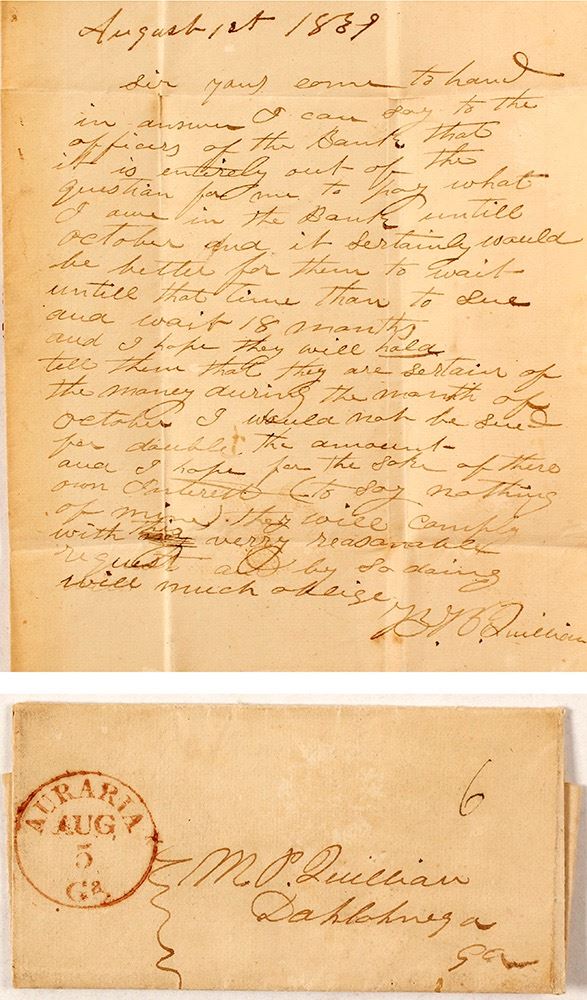 August 1st 1839
Sir yours come to hand
in answer I can say to the
officers of the Bank that
it is entirely out of the
question for me to pay what
I owe in the Bank untill
October and it sertainly would
be better for them to wait
untill that time than to sue
and wait 18 months
and I hope they will hold
tell them that they are sertain of
the money during the month of
October I would not be sued
for double the amount
and I hope for the sake of there
own Interest (to say nothing
of mine) they will comply
with verry reasonable
request and by so doing
will much oblige
Quillian
AURARIA
AUG
5
Ga
6
M P. Quillian
Dahlohnega
Ga